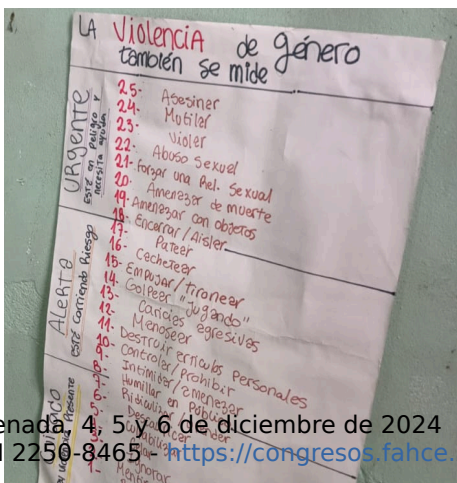 LA Violencia de género
también se mide
URgente
Está en peligro y
necesita ayuda
25- Asesinar
24- Mutilar
23- Violar
22- Abuso sexual
21- Forzar una Rel. Sexual
20- Amenazar de muerte
19- Amenazar con objetos
18- Encerrar/Aislar
ALerta
está corriendo Riesgo
17- Patear
16- Cachetear
15- Empujar/tironear
14- Golpear "Jugando"
13- Caricias agresivas
12- Manosear
11- Destruir artículos personales
10- Controlar/Prohibir
9- Intimidar/amenazar
Humillar en Público
Ridiculizar
Ignorar
enada, 4, 5 y 6 de diciembre de 2024
2250-8465 - https://congresos.fahce.